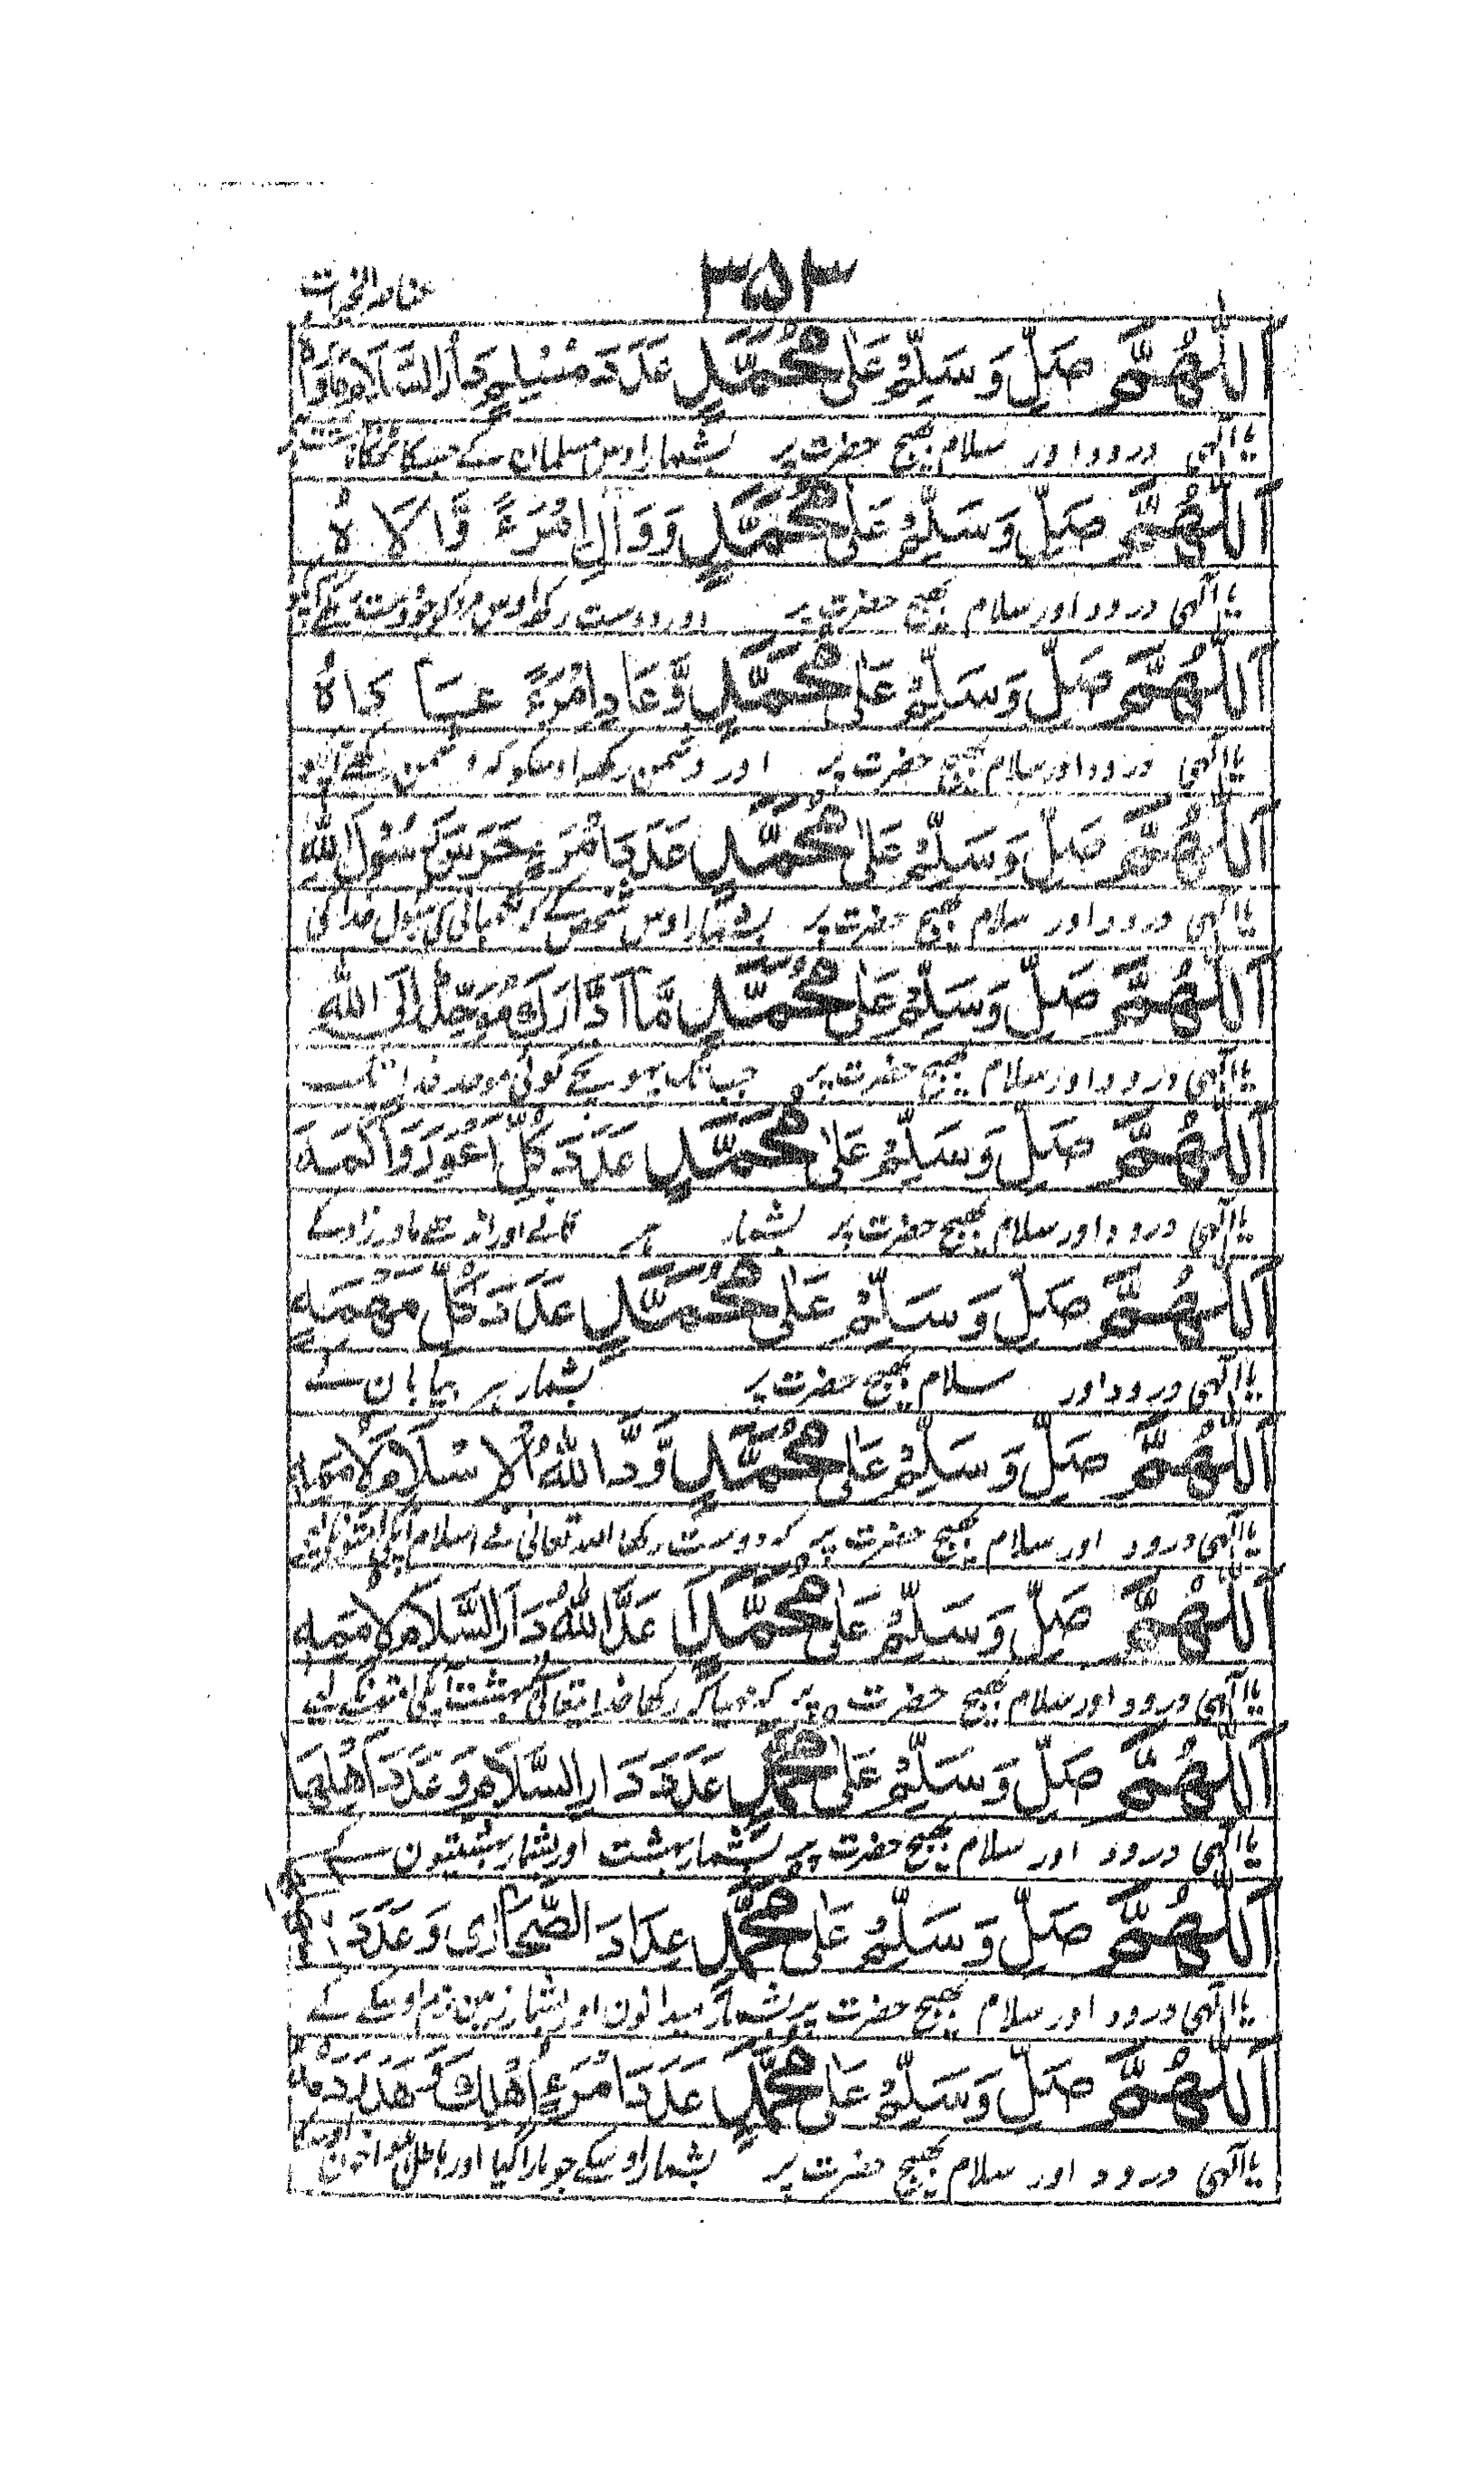 ۳۵۳
اَللّٰهُمَّ صَلِّ وَسَلِّمْ عَلٰى مُحَمَّدٍ عَدَدَ مُسْلِمٍ دَارُ السَّلَامِ
یا الٰہی درود اور سلام بھیج حضرت پر بشمار اوس مسلمان کے جسکا ٹھکانا
اَللّٰهُمَّ صَلِّ وَسَلِّمْ عَلٰى مُحَمَّدٍ وَوَالِ امْرَءً وَّالَاهُ
یا الٰہی درود اور سلام بھیج حضرت پر اور دوست رکھ اوس مرد کو جو دوست رکھے
اَللّٰهُمَّ صَلِّ وَسَلِّمْ عَلٰى مُحَمَّدٍ وَّعَادِ امْرَءً
یا الٰہی درود اور سلام بھیج حضرت پر اور دشمن رکھ اوسکو کہ دشمن رکھے
اَللّٰهُمَّ صَلِّ وَسَلِّمْ عَلٰى مُحَمَّدٍ عَدَدَ امْرَءٍ حَرَسَ رَسُوْلَ اللّٰهِ
یا الٰہی درود اور سلام بھیج حضرت پر بشمار اوس شخص کے کہ نگہبانی کی رسول خدا کی
اَللّٰهُمَّ صَلِّ وَسَلِّمْ عَلٰى مُحَمَّدٍ مَّا مُوَحِّدٌ اِلَى اللّٰهِ
یا الٰہی درود اور سلام بھیج حضرت پر جب تک پہونچے کوئی موحد خدا تک
اَللّٰهُمَّ صَلِّ وَسَلِّمْ عَلٰى مُحَمَّدٍ عَدَدَ كُلِّ اَعْوَرَ وَاَكْمَهَ
یا الٰہی درود اور سلام بھیج حضرت پر بشمار ہر کانے اور اندھے مادرزاد کے
اَللّٰهُمَّ صَلِّ وَسَلِّمْ عَلٰى مُحَمَّدٍ عَدَدَ كُلِّ مَهْمَهٍ
یا الٰہی درود اور سلام بھیج حضرت پر بشمار ہر بیابان کے
اَللّٰهُمَّ صَلِّ وَسَلِّمْ عَلٰى مُحَمَّدٍ وَّدَّ اللّٰهُ الْاِسْلَامَ لِاُمَمِهٖ
یا الٰہی درود اور سلام بھیج حضرت پر کہ دوست رکھا اللہ تعالی نے اسلام
اَللّٰهُمَّ صَلِّ وَسَلِّمْ عَلٰى مُحَمَّدٍ اَعَدَّ اللّٰهُ دَارَ السَّلَامِ لِاُمَمِهٖ
یا الٰہی درود اور سلام بھیج حضرت پر کہ مہیا کر رکھا خدا تعالی بہشت
اَللّٰهُمَّ صَلِّ وَسَلِّمْ عَلٰى مُحَمَّدٍ عَدَدَ دَارِ السَّلَامِ وَعَدَدَ اَهْلِهَا
یا الٰہی درود اور سلام بھیج حضرت پر بشمار بہشت اور بشمار بہشتیون کے
اَللّٰهُمَّ صَلِّ وَسَلِّمْ عَلٰى مُحَمَّدٍ عِدَادَ الصَّحَارٰى وَعَدَدَ
یا الٰہی درود اور سلام بھیج حضرت پر بشمار میدانون اور بشمار
اَللّٰهُمَّ صَلِّ وَسَلِّمْ عَلٰى مُحَمَّدٍ عَدَدَ امْرَءٍ اُهْلِكَ وَهُدِرَ دَمُهٗ
یا الٰہی درود اور سلام بھیج حضرت پر بشمار اوسکے جو مارا گیا اور باطل ہوا خون